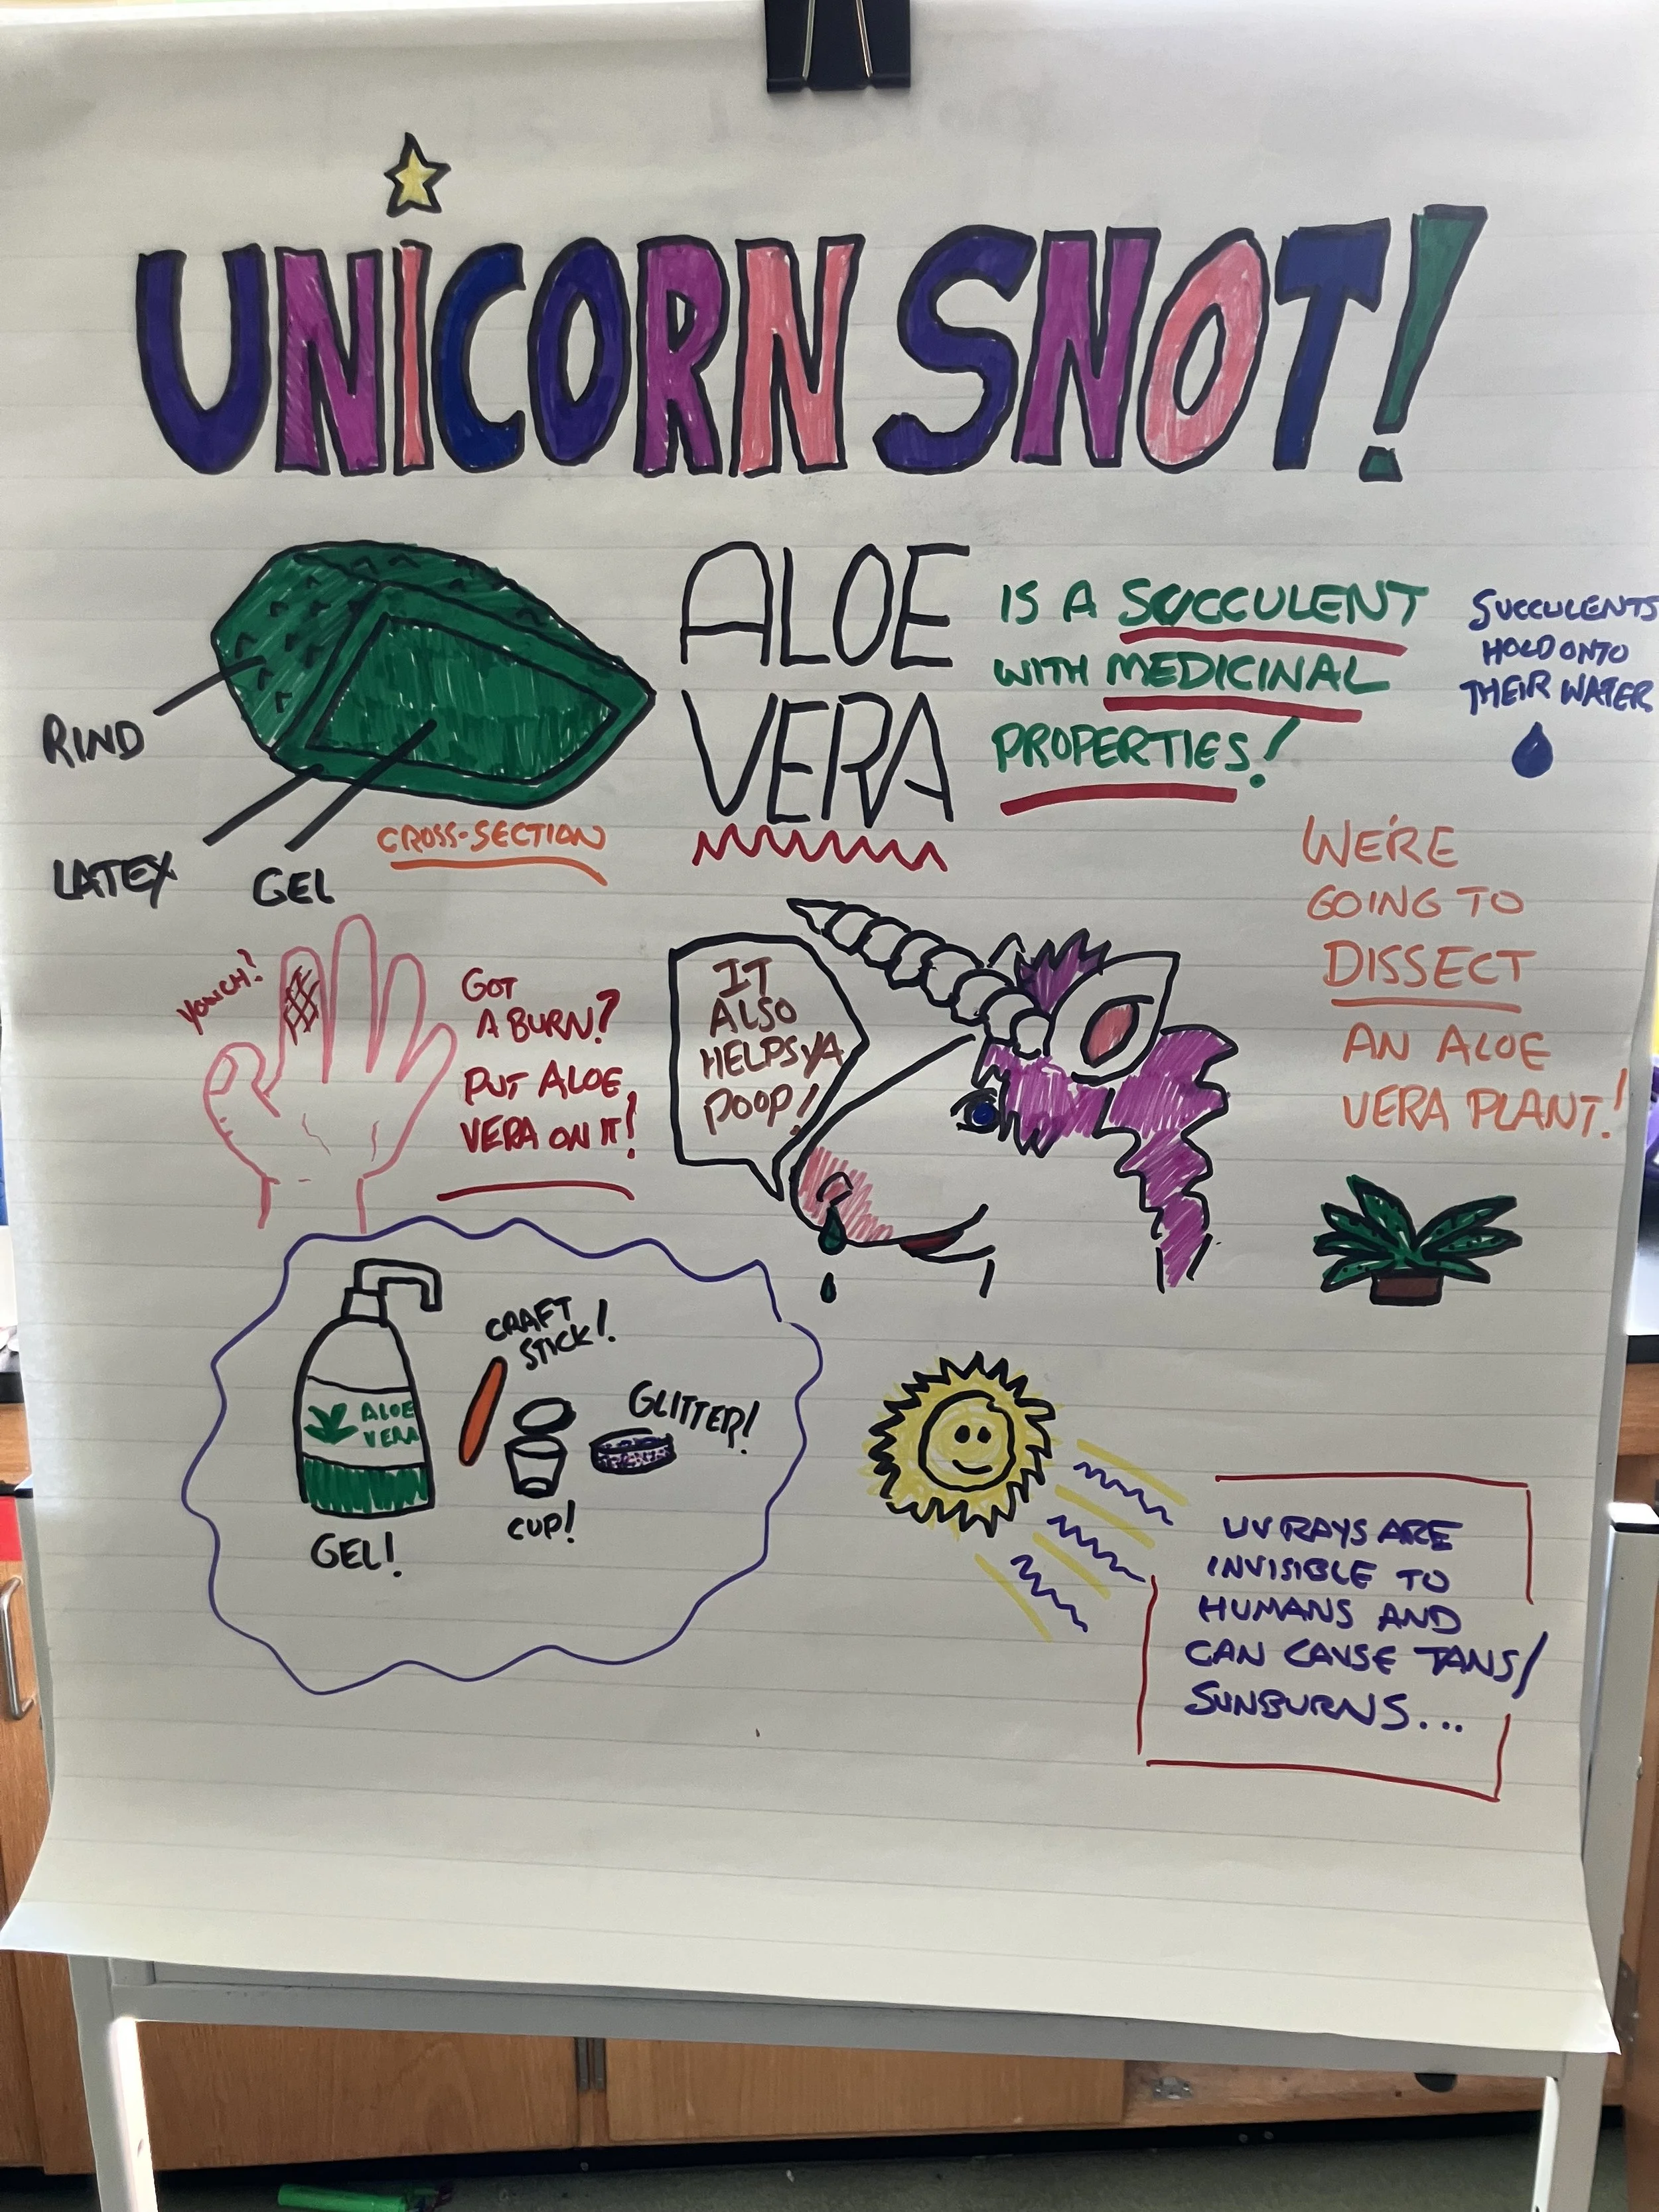 UNICORN SNOT!
ALOE
VERA
IS A SUCCULENT
WITH MEDICINAL
PROPERTIES!
SUCCULENTS
HOLD ONTO
THEIR WATER
RIND
LATEX
GEL
CROSS-SECTION
WE'RE
GOING TO
DISSECT
AN ALOE
VERA PLANT!
YOWCH!
GOT
A BURN?
PUT ALOE
VERA ON IT!
IT
ALSO
HELPS YA
POOP!
CRAFT
STICK!
ALOE
VERA
GLITTER!
CUP!
GEL!
UV RAYS ARE
INVISIBLE TO
HUMANS AND
CAN CAUSE TANS/
SUNBURNS...